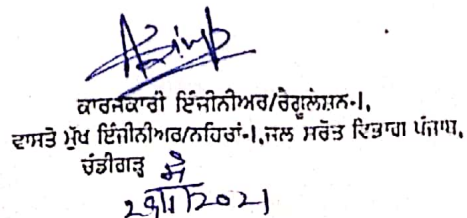 ਕਾਰਜਕਾਰੀ ਇੰਜੀਨੀਅਰ/ਰੈਗੂਲੇਸ਼ਨ-I,
ਵਾਸਤੇ ਮੁੱਖ ਇੰਜੀਨੀਅਰ/ਨਹਿਰਾਂ-I,ਜਲ ਸਰੋਤ ਵਿਭਾਗ ਪੰਜਾਬ,
ਚੰਡੀਗੜ੍ਹ
29/1/2021